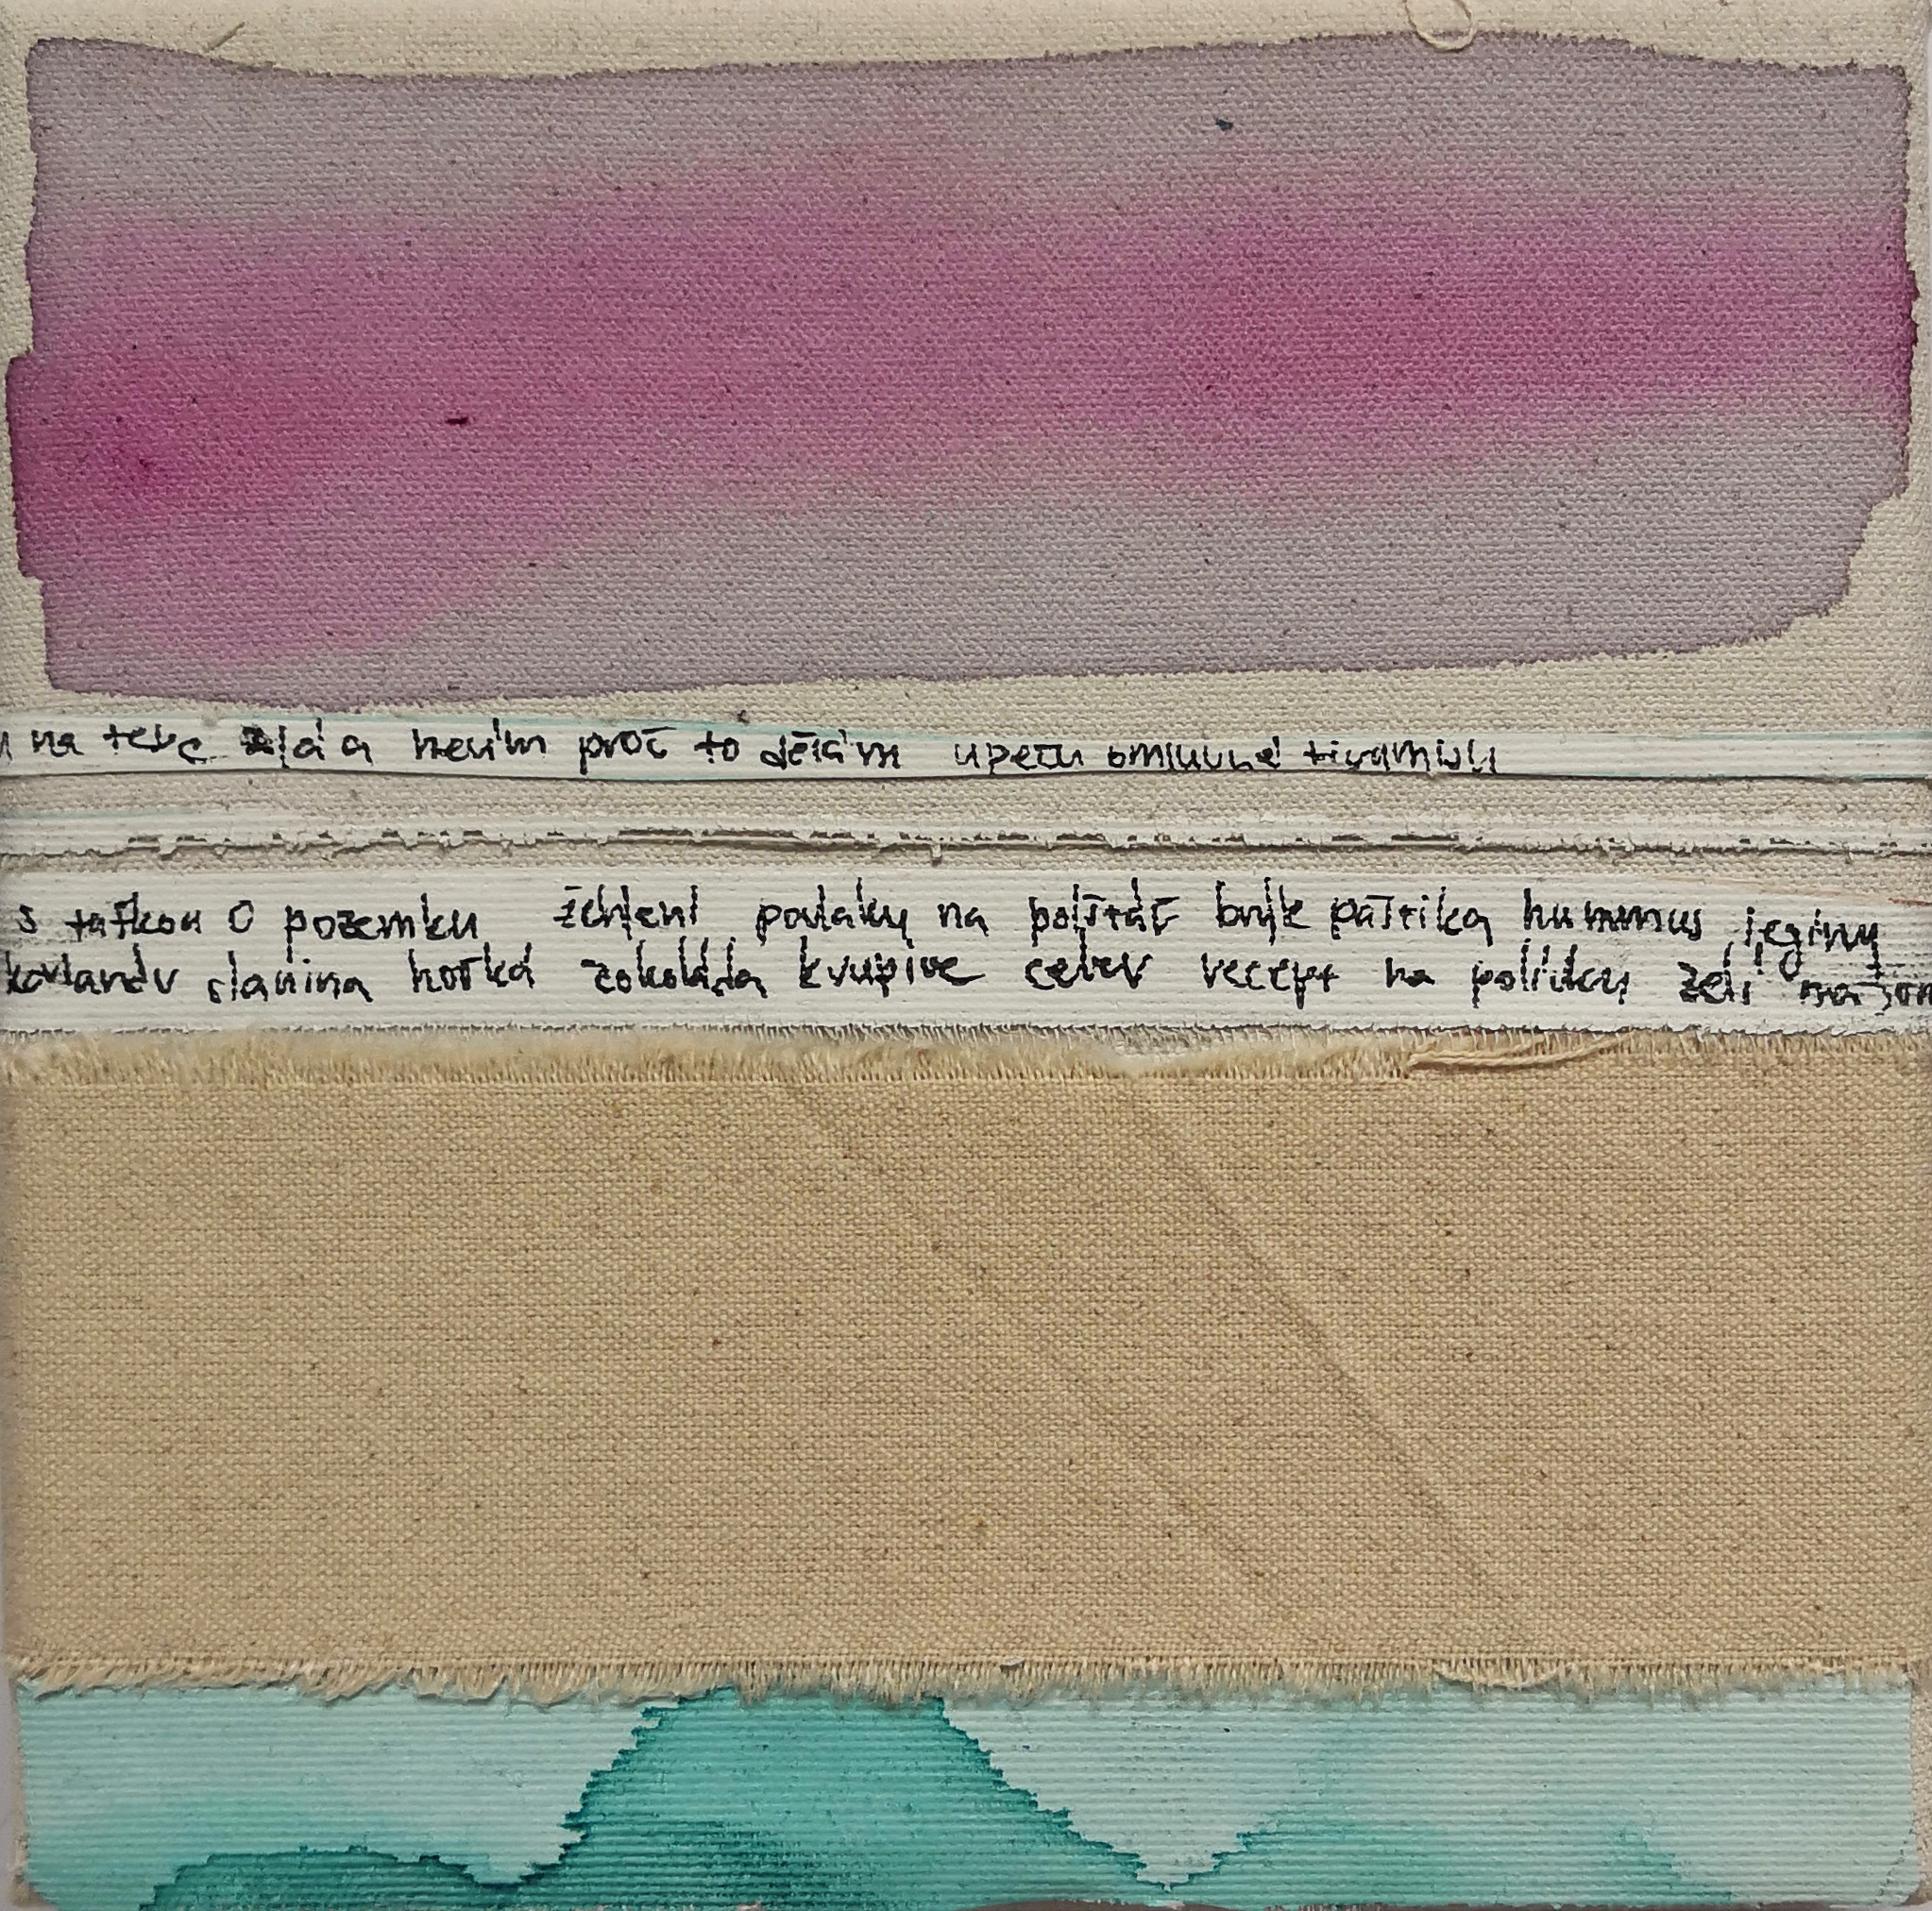 na tebe zlá a nevím proč to dělám upeču omluvné tiramisu
s taťkou o pozemku žehlení povlaky na polštář brýle paštika hummus leginy
slanina hořká čokoláda k vupive celer recept na polívku zelí